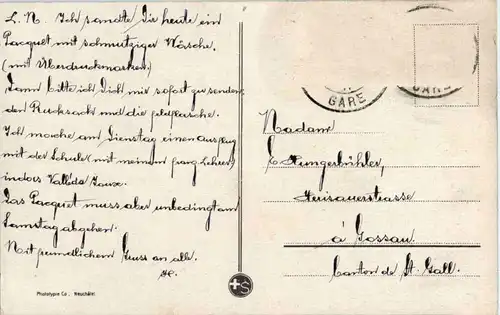 L. N. Ich sandte Dir heute ein
Pacquet mit schmutziger Wäsche.
(mit Überdruckmarken)
Dann bitte ich Dich mir sofort zu senden,
den Rucksack und die Feldflasche.
Ich mache am Dienstag einen Ausflug
mit der Schule (mit meinem Lehrer)
ins Vallée de Joux.
Das Pacquet muss aber unbedingt am
Samstag abgehen.
Mit freundlichem Gruss an all.
GARE
GARE
Madame
Hungerbühler,
Herisauerstrasse
à Gossau
Canton de St. Gall.
Phototypie Co., Neuchâtel
S